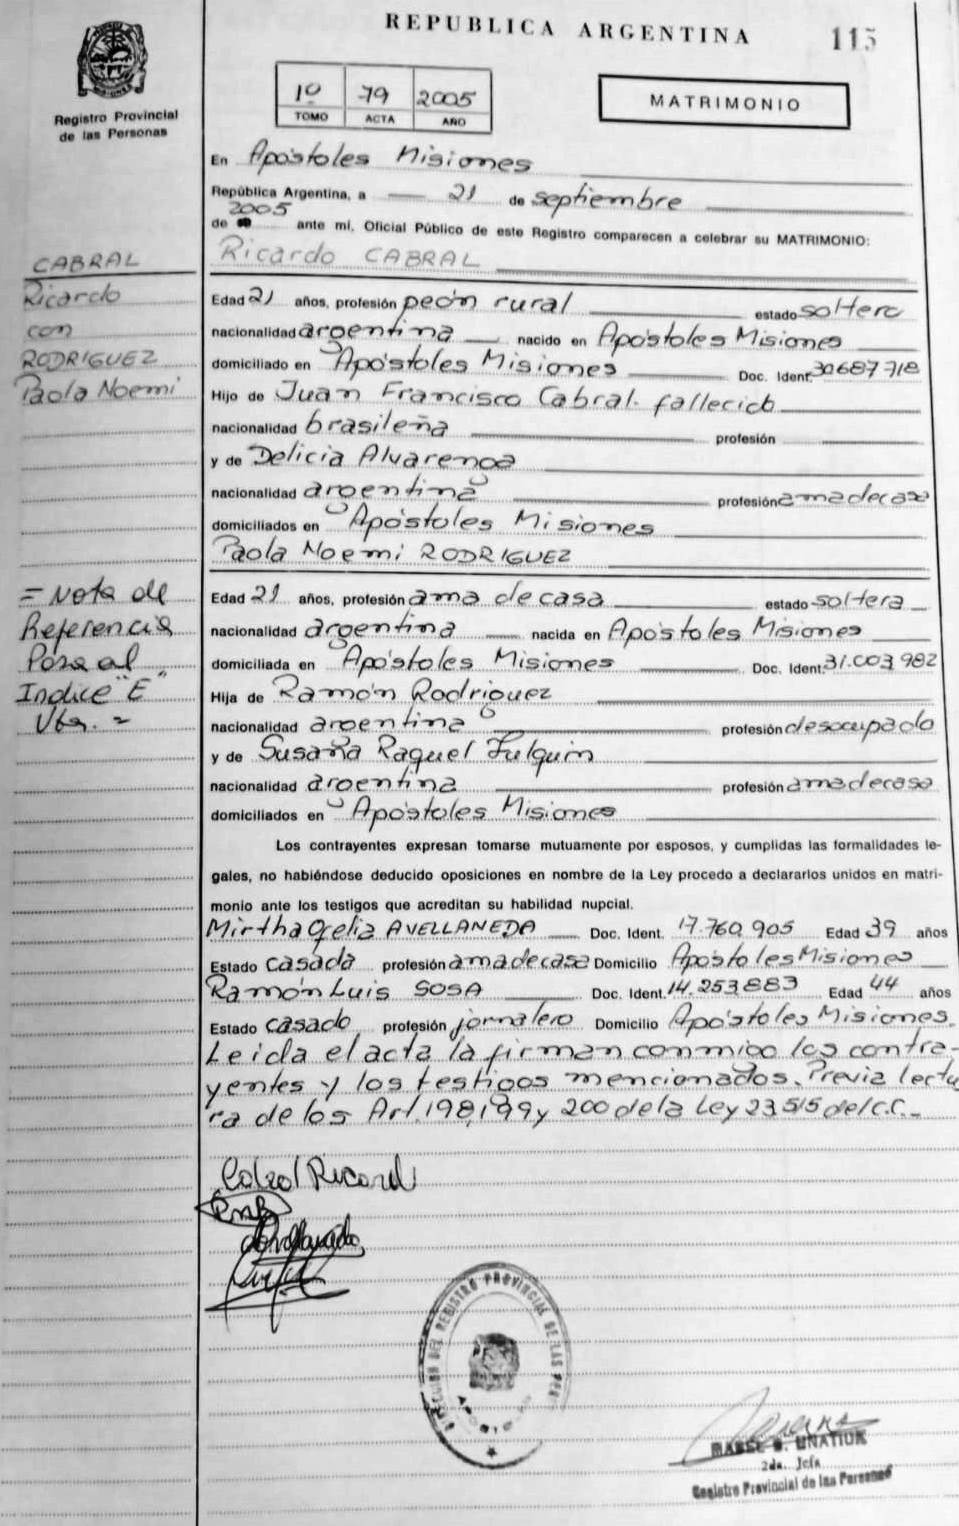 REPUBLICA ARGENTINA
115
Registro Provincial
de las Personas
1º 79 2005
TOMO ACTA AÑO
MATRIMONIO
En Apóstoles Misiones
República Argentina, a 21 de septiembre
2005
de ante mí, Oficial Público de este Registro comparecen a celebrar su MATRIMONIO:
Ricardo CABRAL
CABRAL
Ricardo
con
RODRIGUEZ
Paola Noemi
Edad 21 años, profesión peón rural estado soltero
nacionalidad argentina nacido en Apóstoles Misiones
domiciliado en Apóstoles Misiones Doc. Ident. 30687718
Hijo de Juan Francisco Cabral. fallecido
nacionalidad brasileña profesión
y de Delicia Alvarenga
nacionalidad argentina profesión ama de casa
domiciliados en Apóstoles Misiones
Paola Noemi RODRIGUEZ
= Nota de
Referencia
Pasa al
Indice "E"
Edad 21 años, profesión ama de casa estado soltera
nacionalidad argentina nacida en Apóstoles Misiones
domiciliada en Apóstoles Misiones Doc. Ident. 31.003.982
Hija de Ramón Rodriguez
nacionalidad argentina profesión desocupado
y de Susana Raquel Fulquin
nacionalidad argentina profesión ama de casa
domiciliados en Apóstoles Misiones
Los contrayentes expresan tomarse mutuamente por esposos, y cumplidas las formalidades le-
gales, no habiéndose deducido oposiciones en nombre de la Ley procedo a declararlos unidos en matri-
monio ante los testigos que acreditan su habilidad nupcial.
Mirtha Ofelia AVELLANEDA Doc. Ident. 17.760.905 Edad 39 años
Estado casada profesión ama de casa Domicilio Apóstoles Misiones
Ramón Luis SOSA Doc. Ident. 14.253.883 Edad 44 años
Estado casado profesión jornalero Domicilio Apóstoles Misiones.
Leida el acta la firman conmigo los contra-
yentes y los testigos mencionados. Previa lectu
ra de los Art. 198,199 y 200 de la Ley 23515 del C.C.-
Cabral Ricard
DIRECCION DEL REGISTRO PROVINCIAL DE LAS PER
UNATIUK
2da. Jefa
Registro Provincial de las Personas